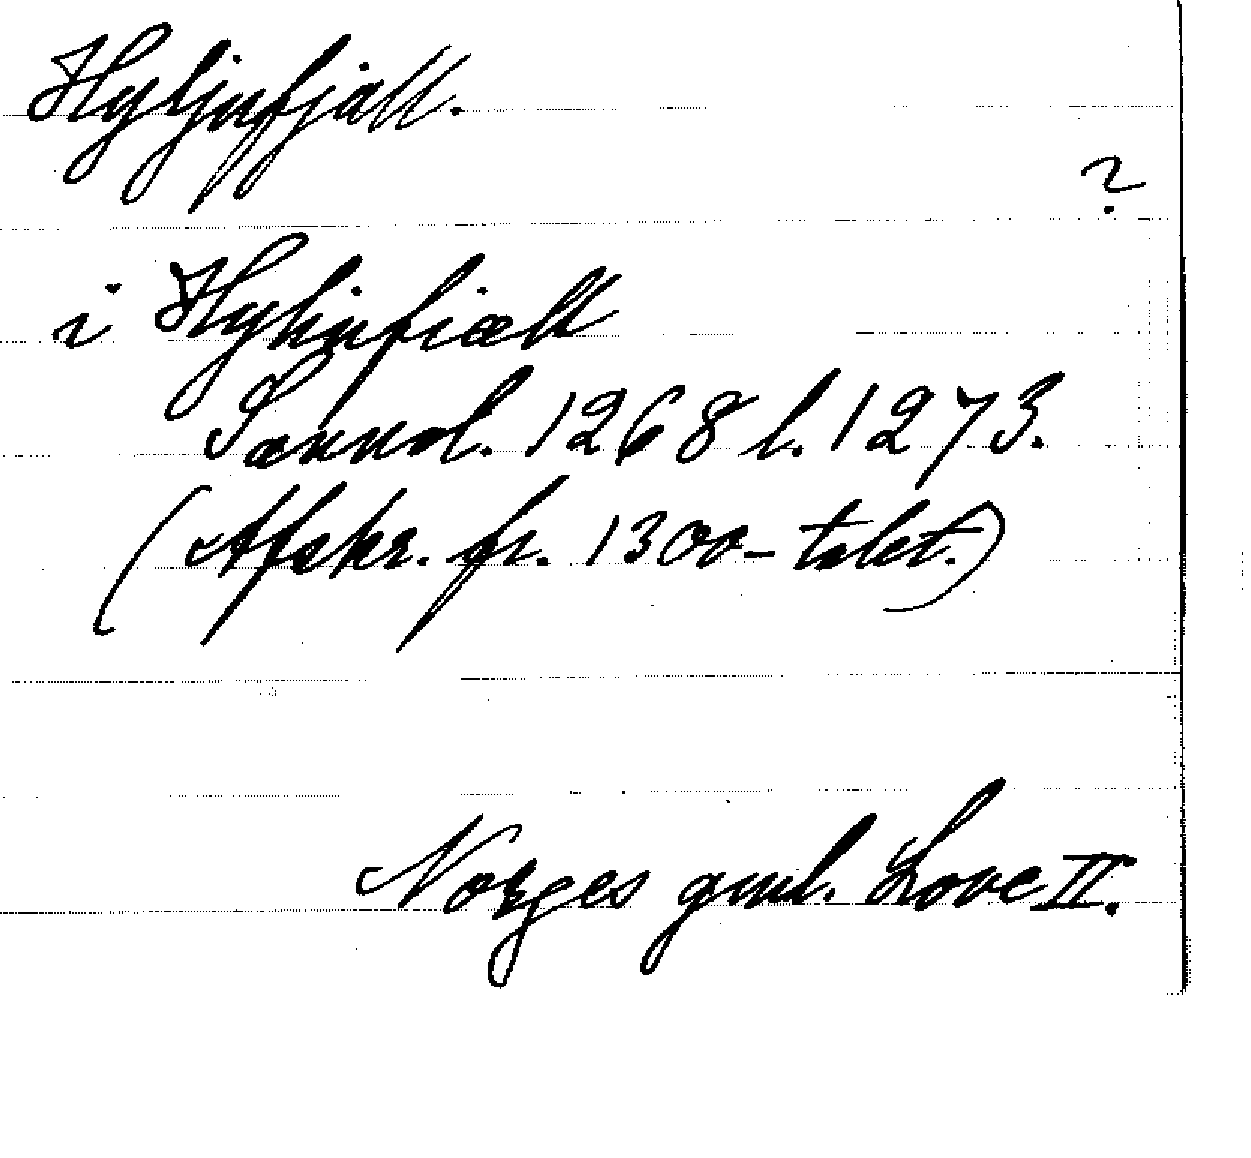 Hyljufjäll.
?
i Hyliufiæll
Sannol. 1268 l. 1273.
(Afskr. fr. 1300-talet.)
Norges gml. Love II.